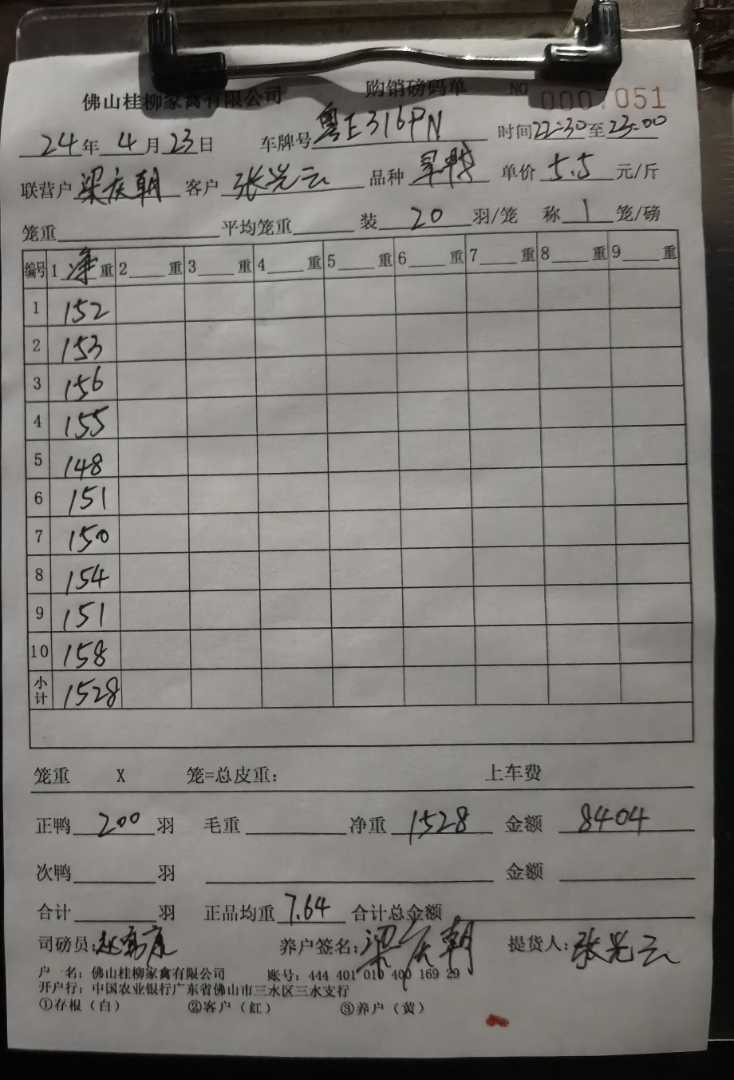 佛山桂柳家禽有限公司 购销磅码单 NO 0007051
24年 4月23日 车牌号 粤E316PN 时间22:30至23:00
联营户 梁庆朝 客户 张光云 品种 旱鸭 单价 5.5 元/斤
笼重 平均笼重 装 20 羽/笼 称 1 笼/磅
编号 1 净 重 2 重 3 重 4 重 5 重 6 重 7 重 8 重 9 重
1 152
2 153
3 156
4 155
5 148
6 151
7 150
8 154
9 151
10 158
小计 1528
笼重 X 笼=总皮重: 上车费
正鸭 200 羽 毛重 净重 1528 金额 8404
次鸭 羽 金额
合计 羽 正品均重 7.64 合计总金额
司磅员: 养户签名: 梁庆朝 提货人: 张光云
户 名: 佛山桂柳家禽有限公司 账号: 444 401 010 400 169 29
开户行: 中国农业银行广东省佛山市三水区三水支行
①存根(白) ②客户(红) ③养户(黄)